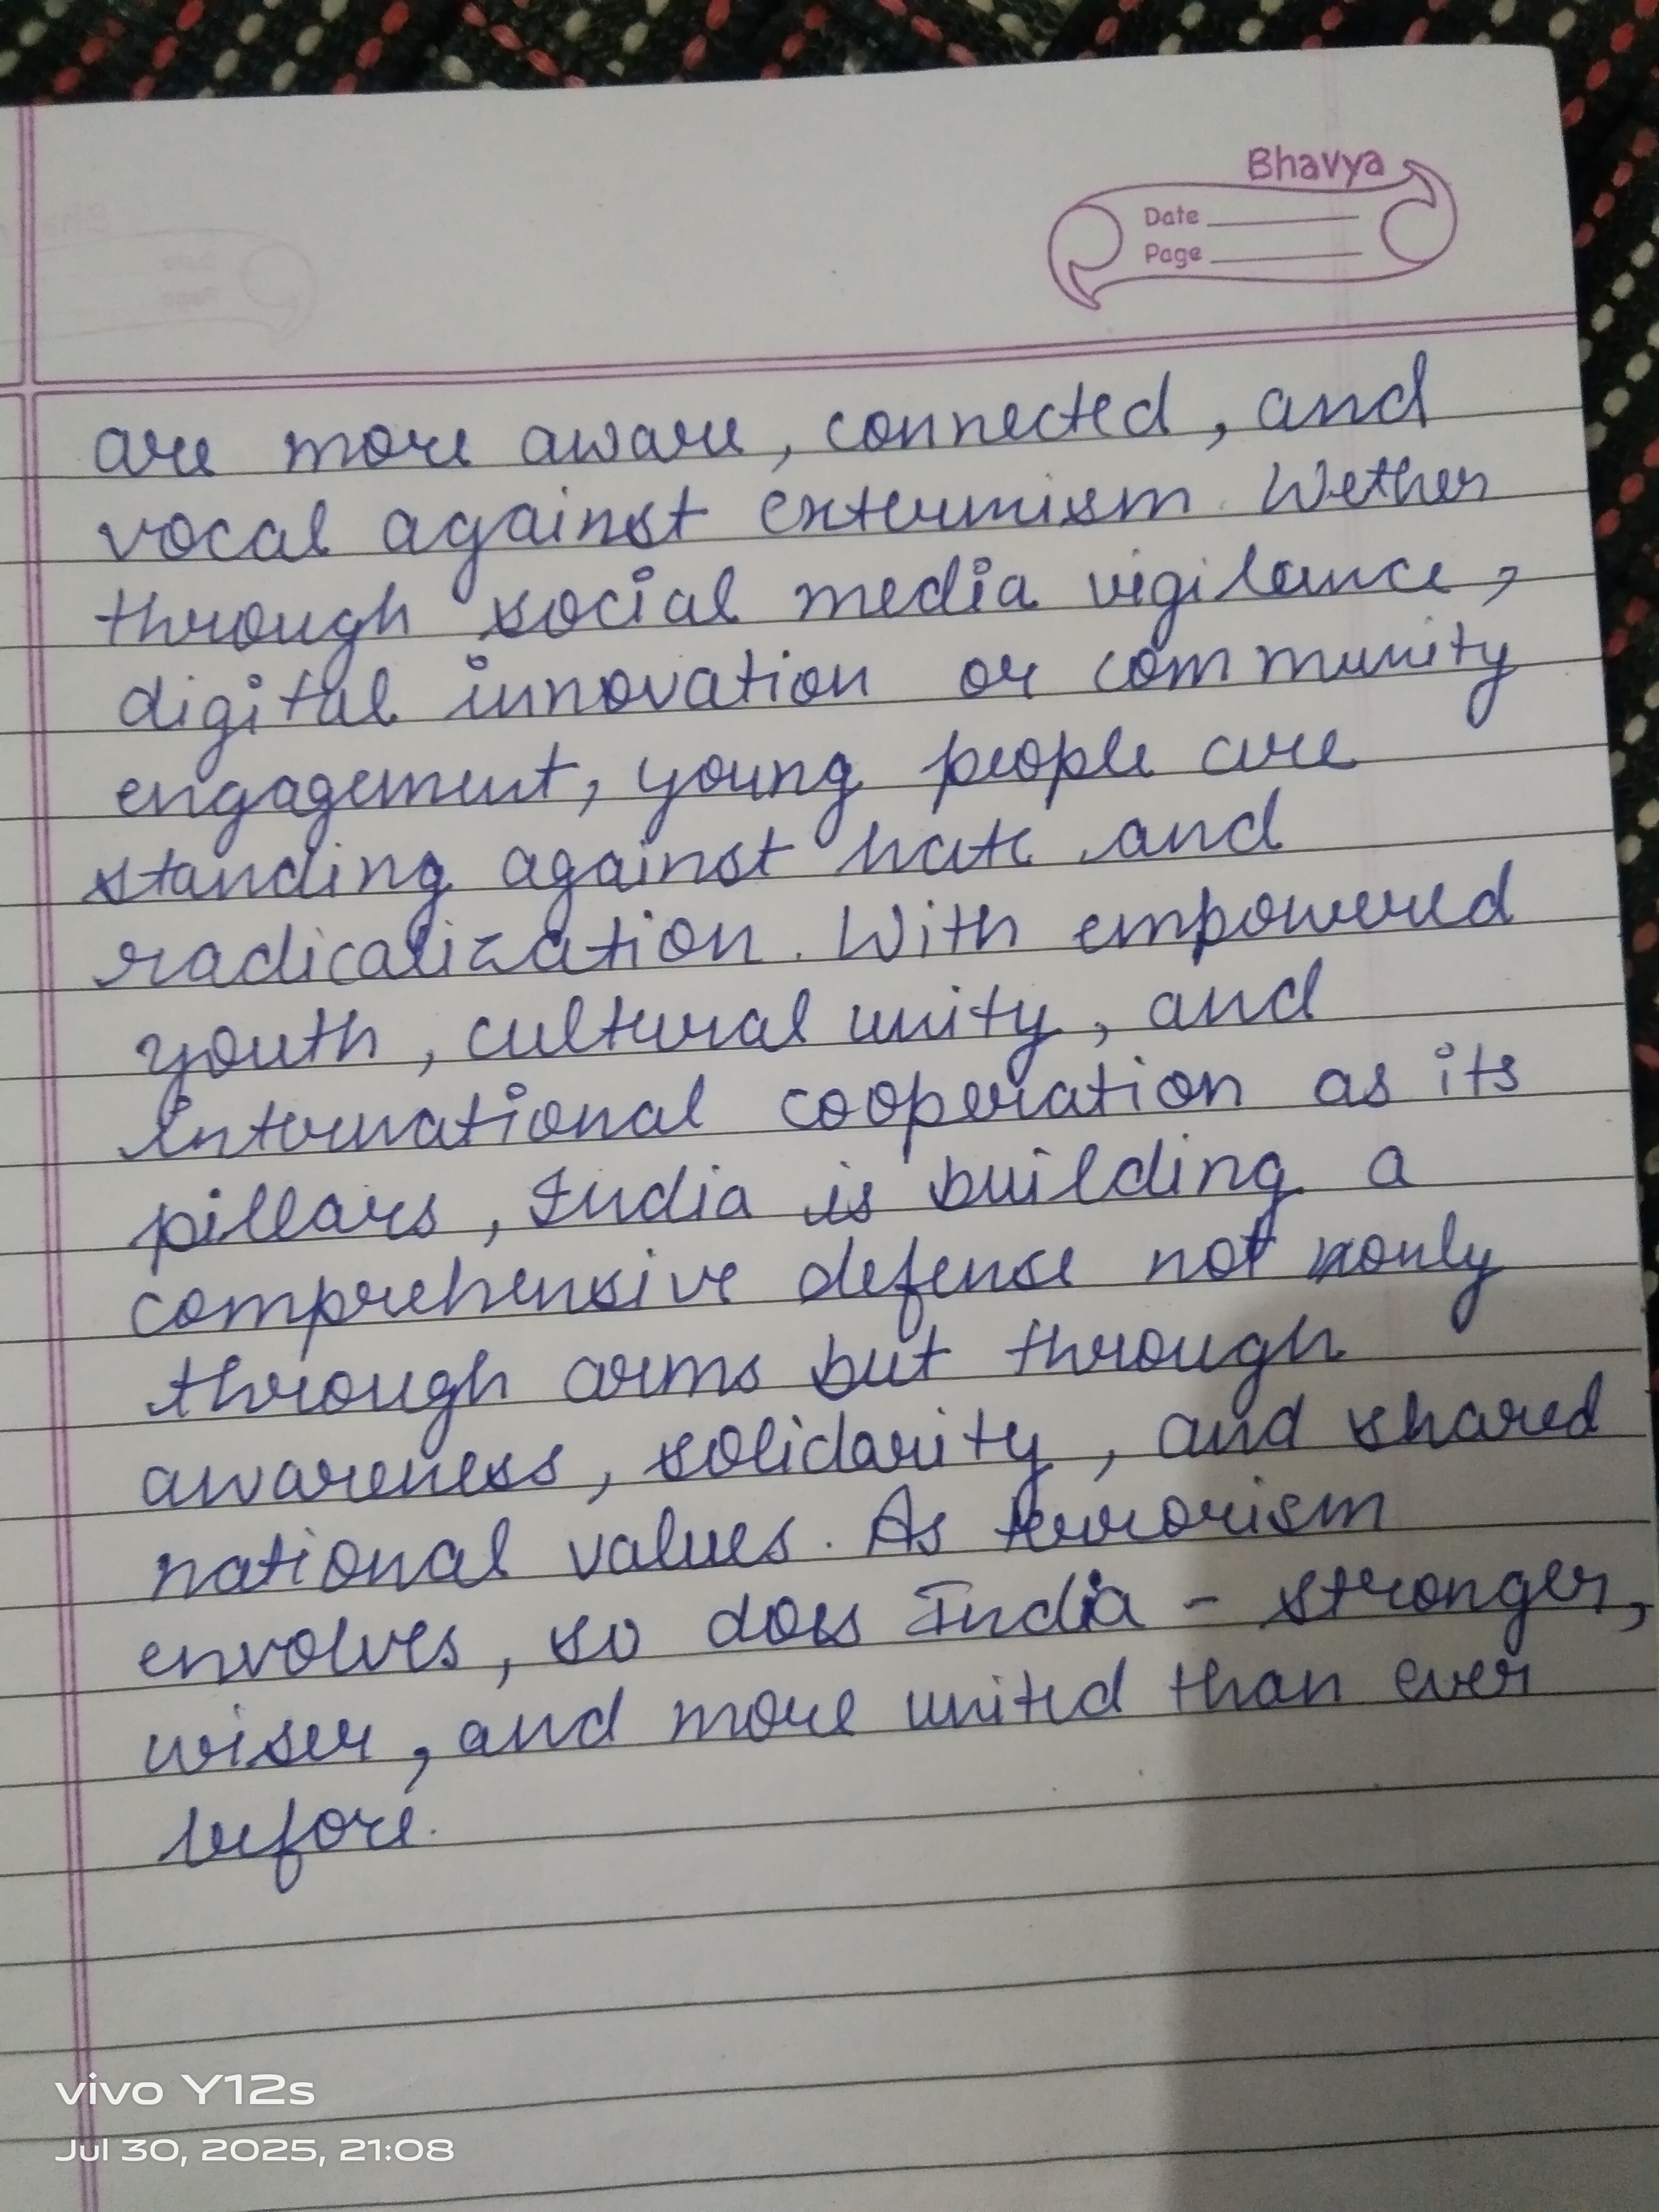 Bhavya
Date
Page
are more aware, connected, and
vocal against extremism. Wether
through social media vigilance,
digital innovation or community
engagement, young people are
standing against hate and
radicalization. With empowered
youth, cultural unity, and
international cooperation as its
pillars, India is building a
comprehensive defense not only
through arms but through
awareness, solidarity, and shared
national values. As terrorism
envolves, so does India - stronger,
wiser, and more united than ever
before.
vivo Y12s
Jul 30, 2025, 21:08